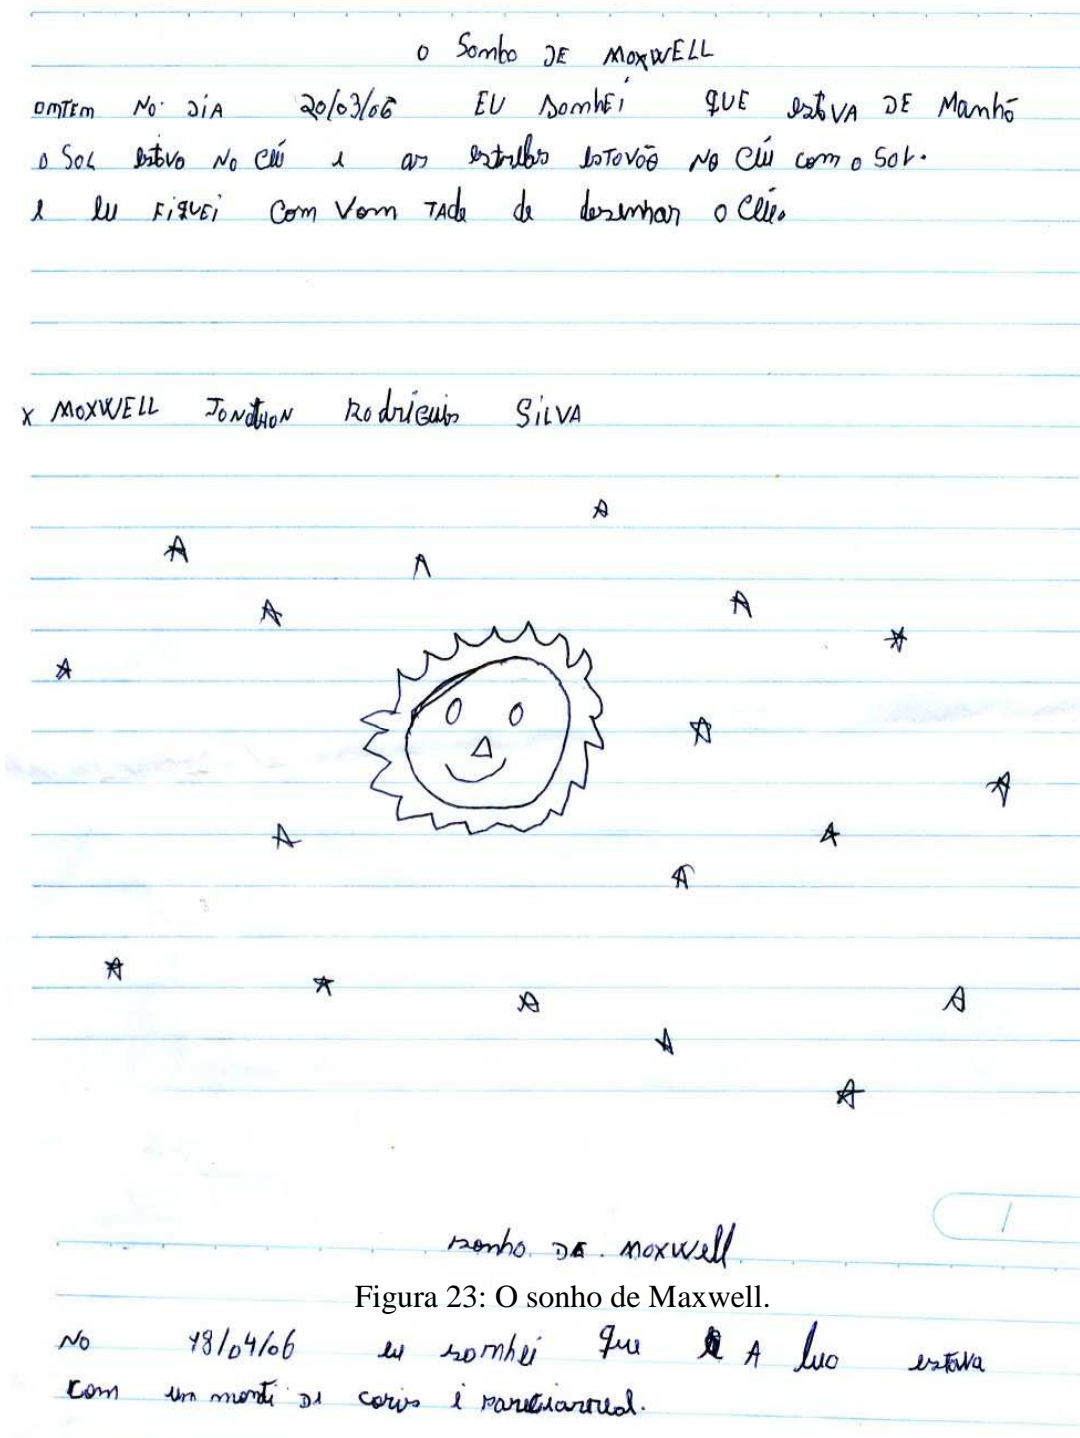 O Sombo DE MOXWELL
OMTEM NO DIA 20/03/06 EU SOMHEI QUE estVA DE Manhã
O SOL estovo NO Céu e as estrellas estovõo NO Céu com o SOL.
e eu FiQUEi com Vom TAde de desenhar o Céu.
X MOXWELL JONOTHON RodriGuis SiLVA
1
sonho DE MOXWell
Figura 23: O sonho de Maxwell.
NO 18/04/06 eu somhei que A luo estava
com um monti DE coris i